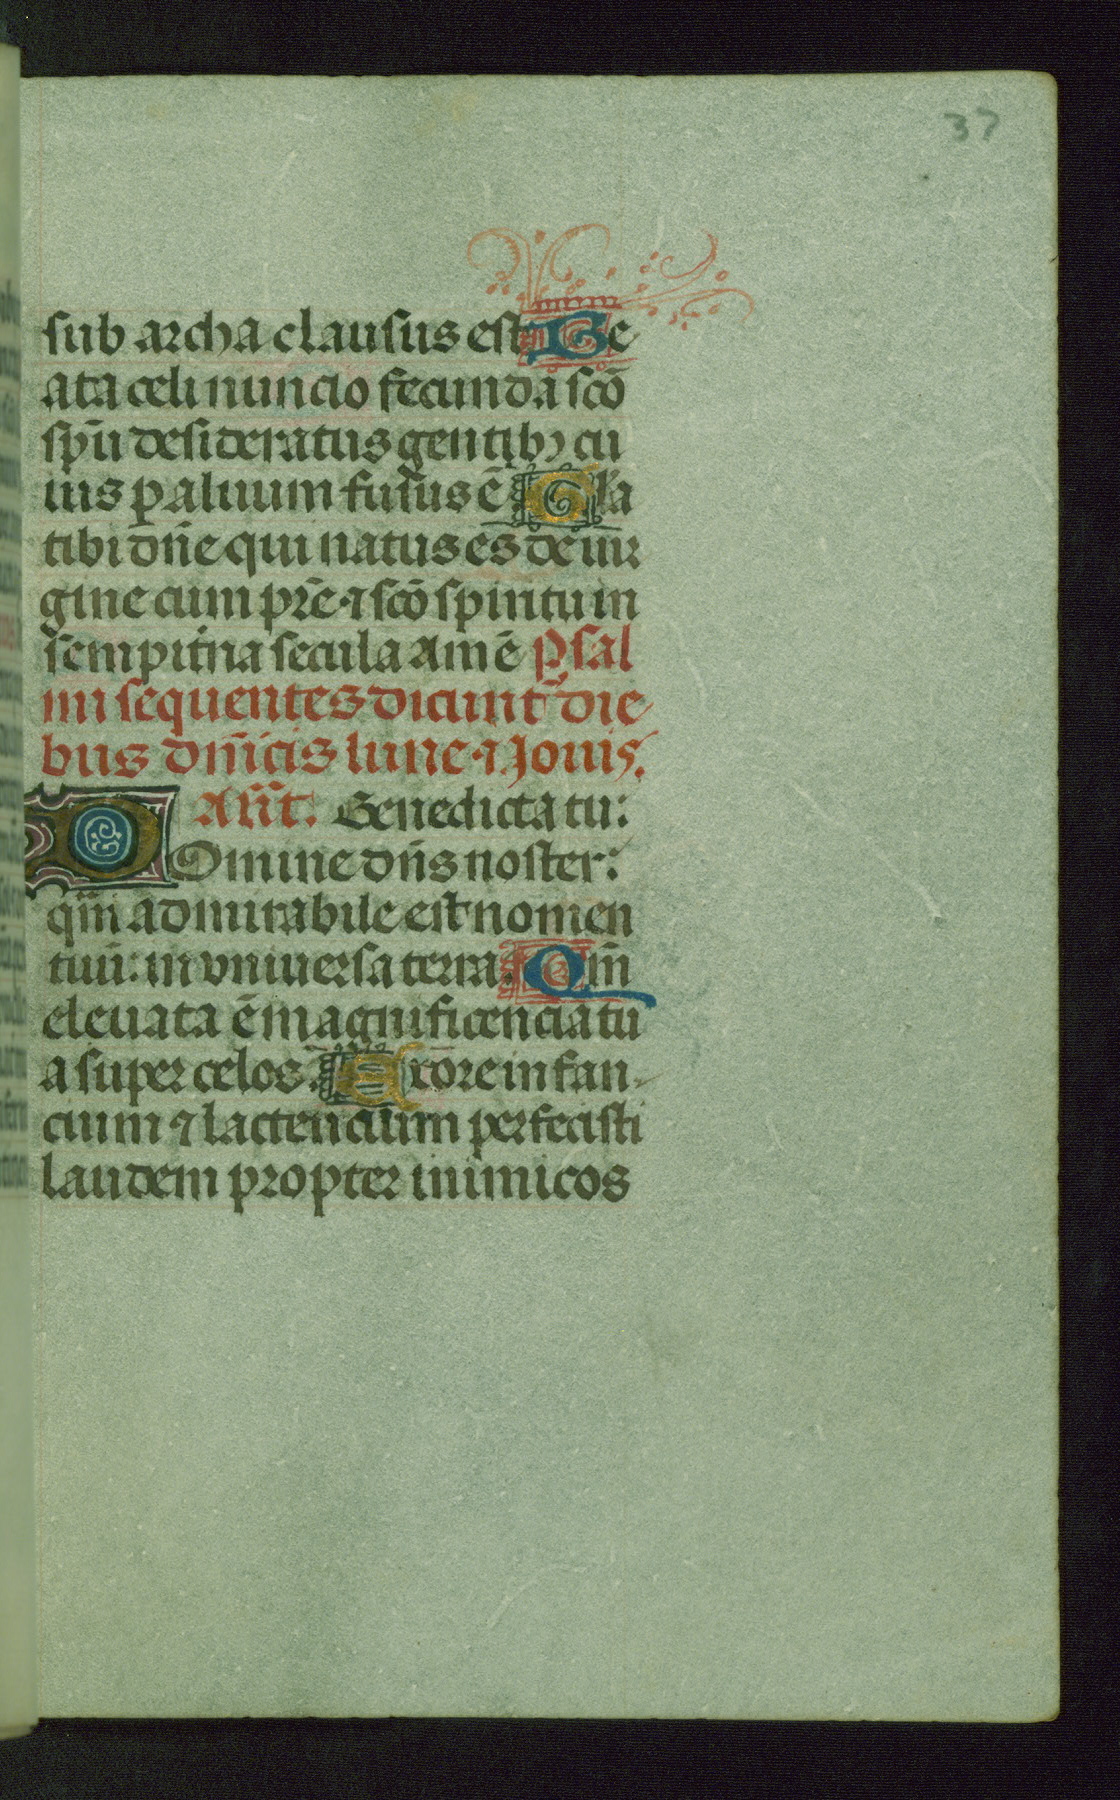 37
sub archa clausus est Be
ata celi nuncio fecunda sc̄o
sp̄u desideratus gentibꝫ cu
ius ꝑ aluum fusus ē Gl̄a
tibi dn̄e qui natus es de uir
gine cum pr̄e ⁊ sc̄o spiritu in
sempit̄na secula amē Psal
mi sequentes dicunt̄ die
bus dn̄icis lune ⁊ Jouis.
An̄t. Benedicta tu:
Domine dn̄s noster:
qm̄ admirabile est nomen
tuū: in vniuersa terra. Qm̄
eleuata ē magnificencia tu
a super celos. Ex ore infan
cium ⁊ lactencium perfecisti
laudem propter inimicos